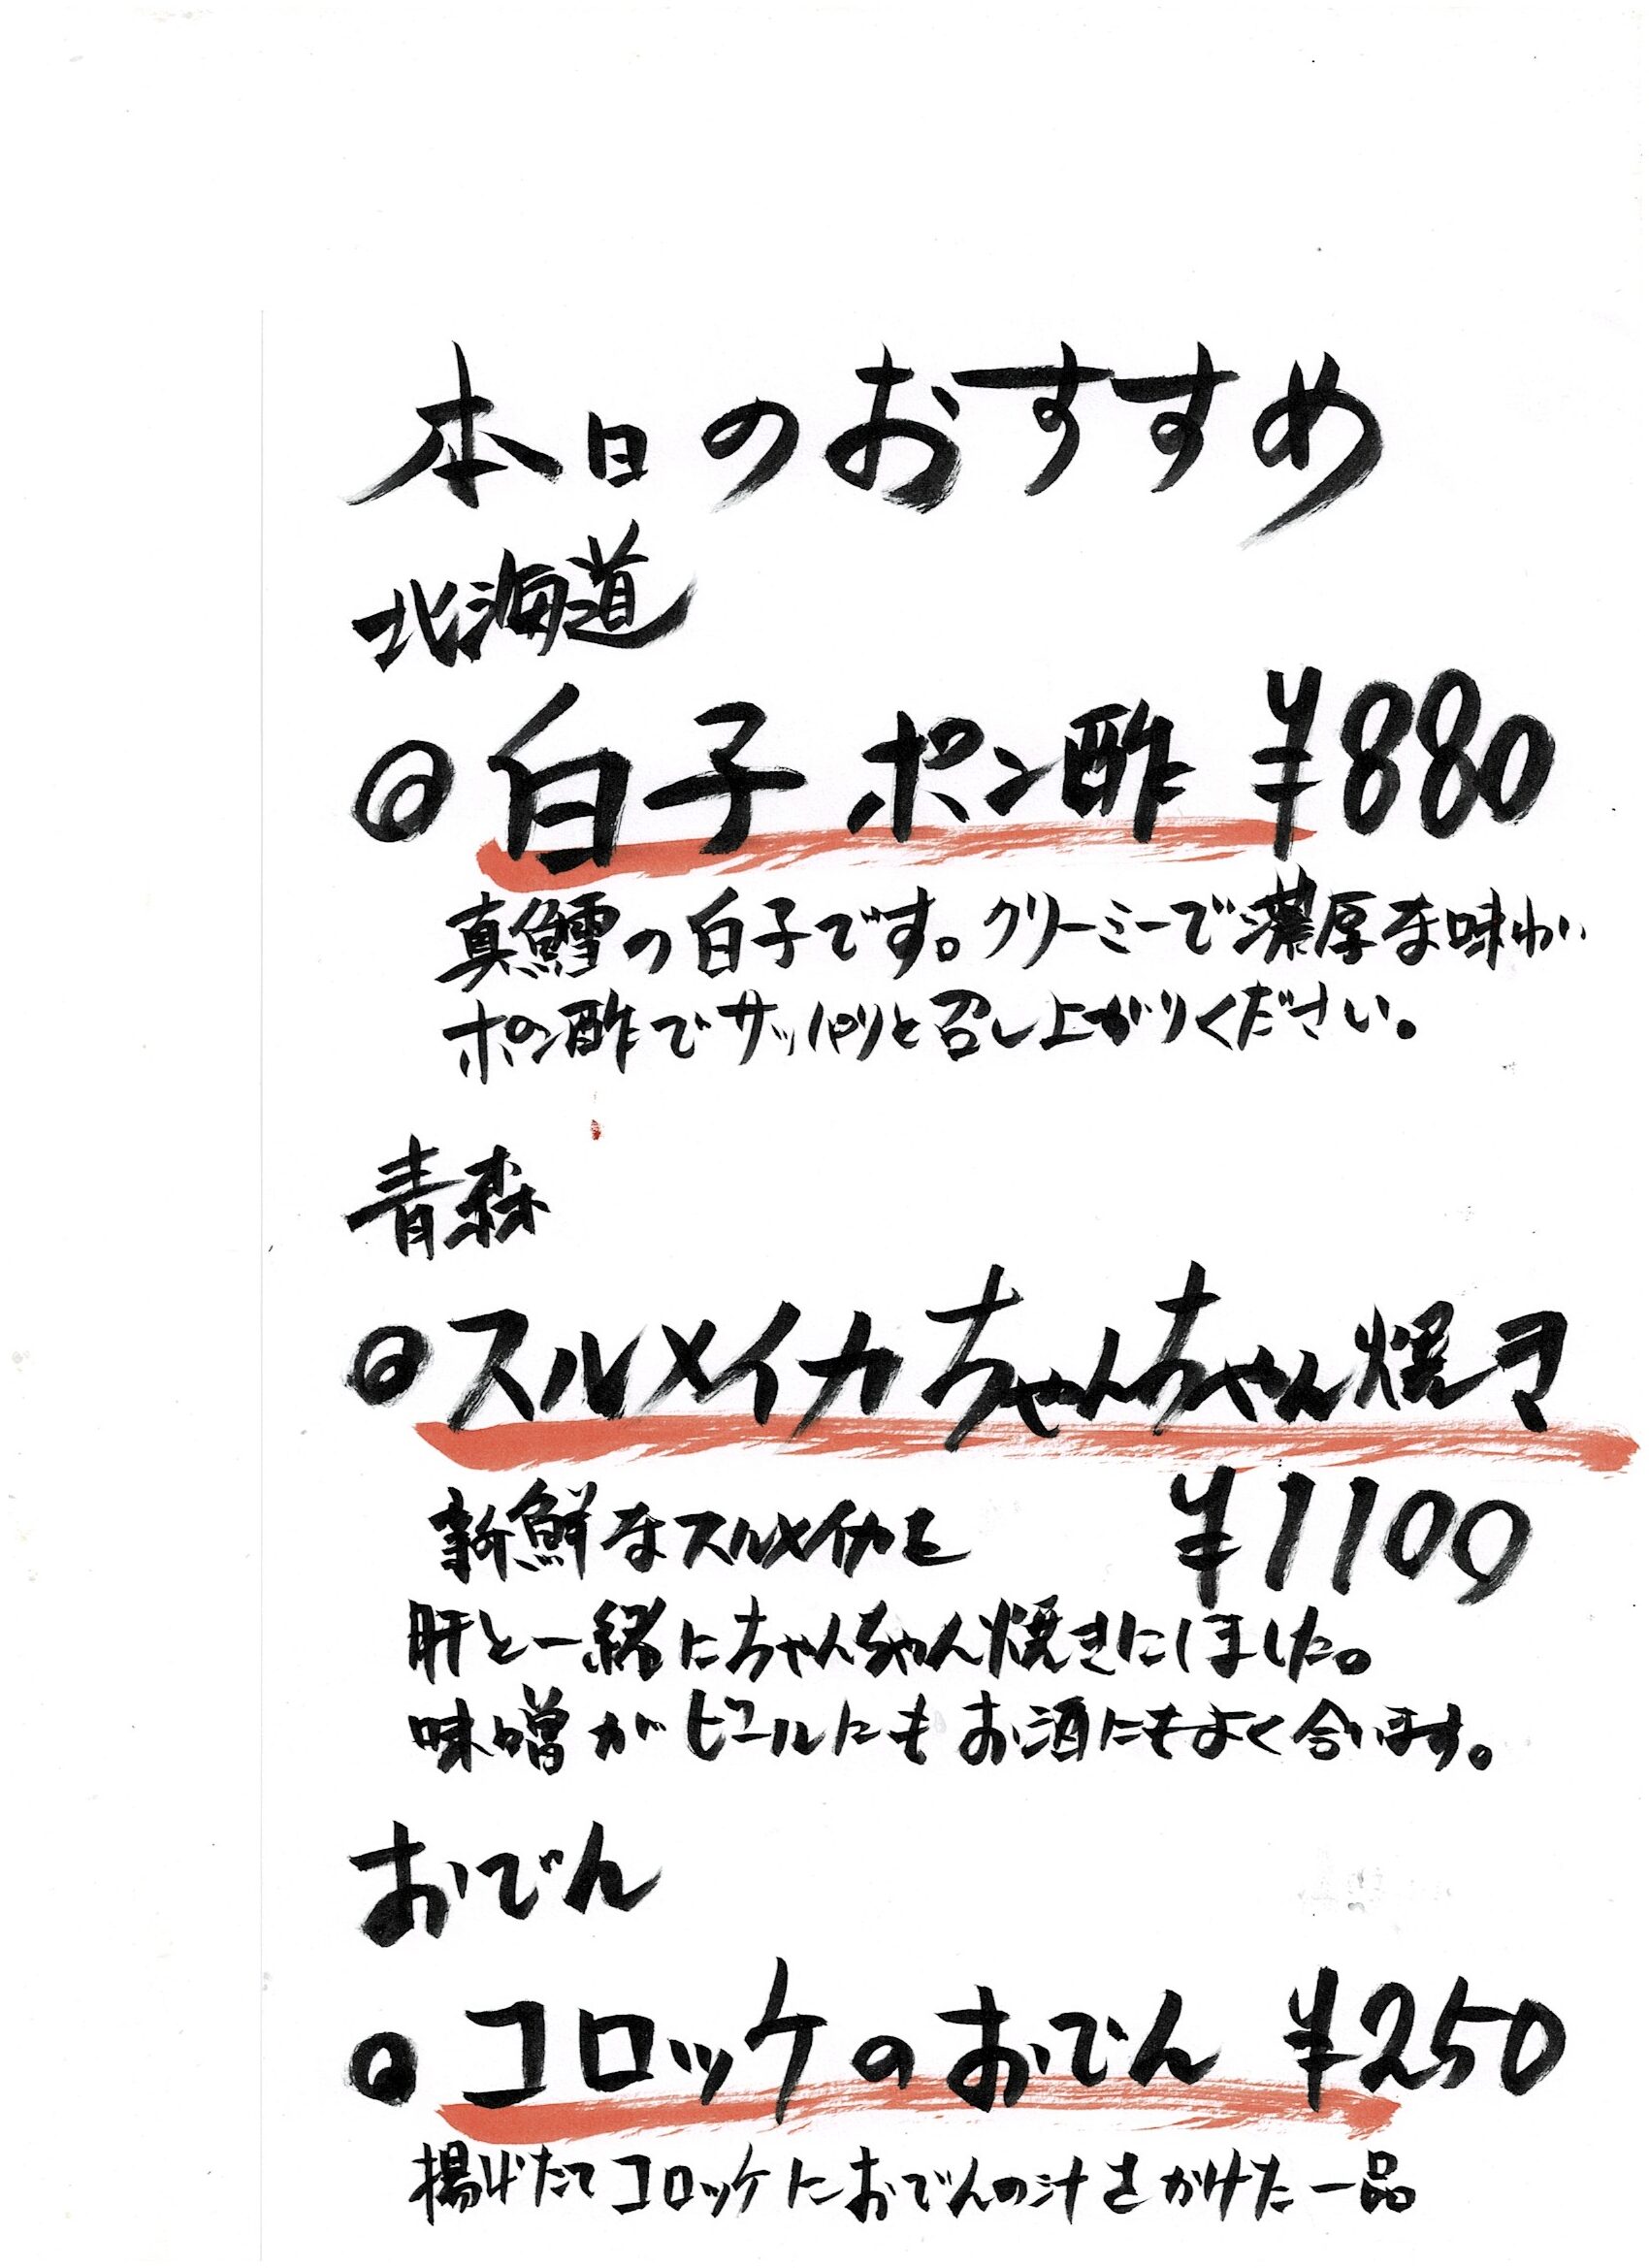 本日のおすすめ
北海道
◎白子ポン酢 ¥880
真鱈の白子です。クリーミーで濃厚な味わい
ポン酢でサッパリと召し上がりください。
青森
◎スルメイカちゃんちゃん焼き
新鮮なスルメイカを ¥1100
肝と一緒にちゃんちゃん焼きにしました。
味噌がビールにもお酒にもよく合います。
おでん
◎コロッケのおでん ¥250
揚げたてコロッケにおでんの汁をかけた一品